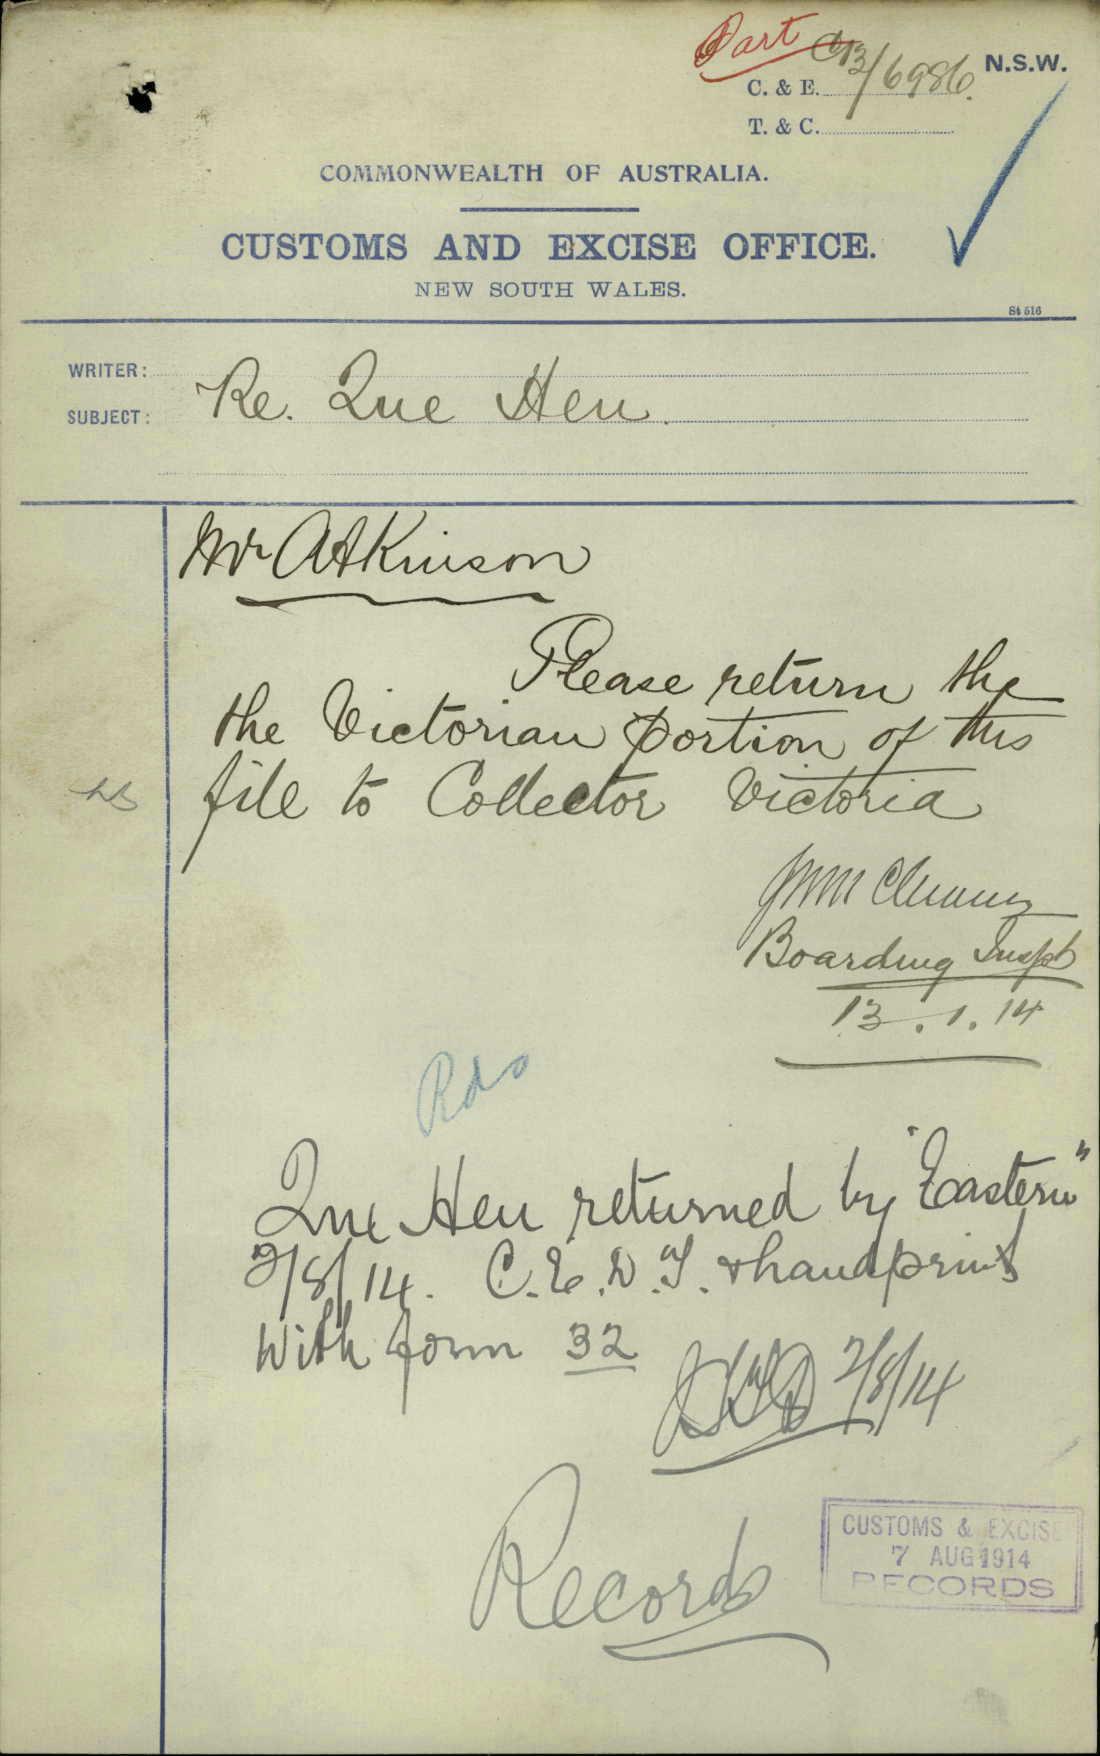 Part C13/6986. N.S.W.
C. & E.
T. & C.
COMMONWEALTH OF AUSTRALIA.
CUSTOMS AND EXCISE OFFICE.
NEW SOUTH WALES.
St 516
WRITER:
SUBJECT: Re. Que Hen.
Mr Atkinson
Please return the
the Victorian portion of this
file to Collector Victoria
Boarding Inspt
13.1.14
Rds
Que Hen returned by "Eastern"
2/8/14. C.E.D.T. & handprints
with form 32
7/8/14
Records
CUSTOMS & EXCISE
7 AUG 1914
RECORDS